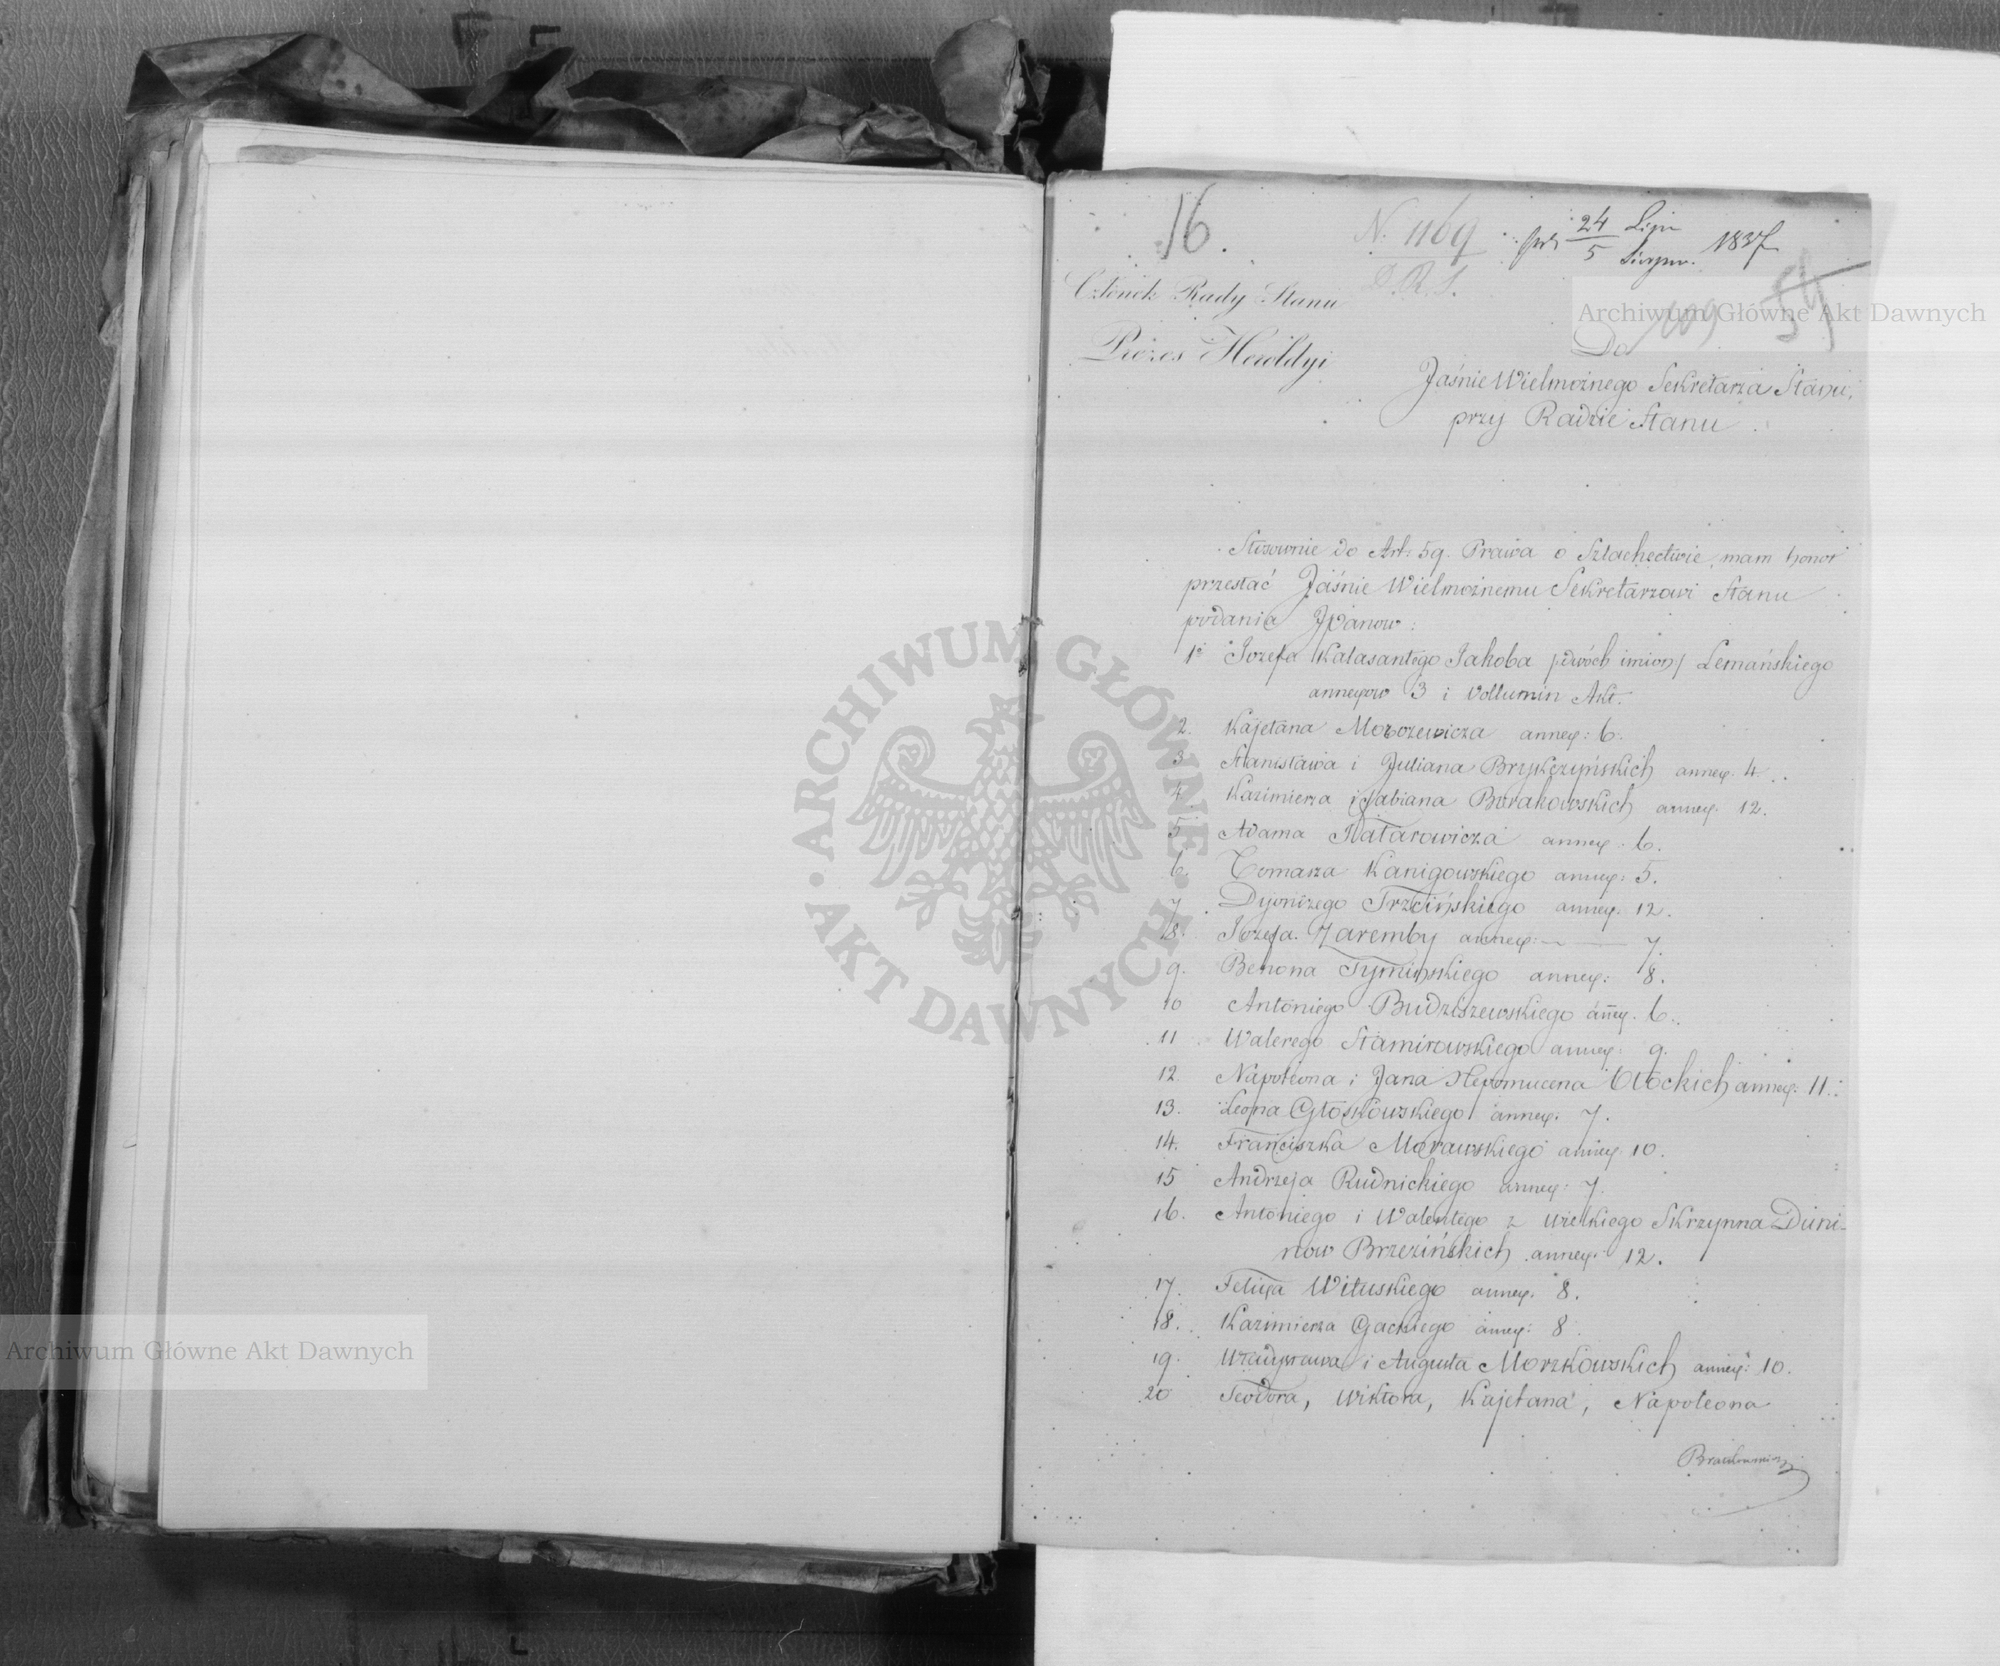 16.
N. 1169
D.R.S.
24 Lipn
5 Sierpn. 1837
54
109
Członek Rady Stanu
Prezes Heroldyi
Do
Jaśnie Wielmożnego Sekretarza Stanu,
przy Radzie Stanu
Stosownie do Art: 59. Prawa o Szlachectwie, mam honor
przesłać Jaśnie Wielmożnemu Sekretarzowi Stanu
podania JPanow:
1° Jozefa Kalasantego Jakoba /dwóch imion/ Lemańskiego
annexow 3 i Vollumin Akt.
2. Kajetana Morozewicza annex: 6.
3 Stanisława i Juliana Brzykczyńskich annex. 4.
4. Kazimierza i Fabiana Burakowskich annex. 12.
5 Adama Natarowicza annex. 6.
6. Tomasza Kanigowskiego annex: 5.
7 Dyonizego Trzcińskiego annex. 12.
8. Jozefa Zaremby annex: 7.
9. Benona Tymińskiego annex: 8.
10 Antoniego Budziszewskiego annex. 6.
11 Walerego Stamirowskiego annex: 9.
12. Napoleona i Jana Nepomucena Otockich annex: 11.
13. Leona Głoskowskiego annex. 7.
14. Franciszka Morawskiego annex 10.
15 Andrzeja Rudnickiego annex: 7.
16. Antoniego i Walentego z Wielkiego Skrzynna Duni-
now Brzezińskich annex: 12.
17. Felixa Wituskiego annex. 8.
18. Kazimierza Gackiego annex: 8
19. Władysława i Augusta Morzkowskich annex: 10.
20 Teodora, Wiktora, Kajetana, Napoleona
Archiwum Główne Akt Dawnych
Archiwum Główne Akt Dawnych
ARCHIWUM GŁÓWNE AKT DAWNYCH